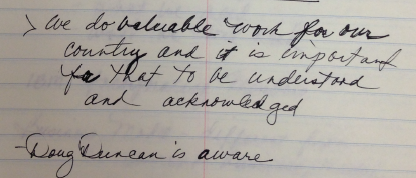 > We do valuable work for our
country and it is important
for that to be understood
and acknowledged
- Doug Duncan is aware